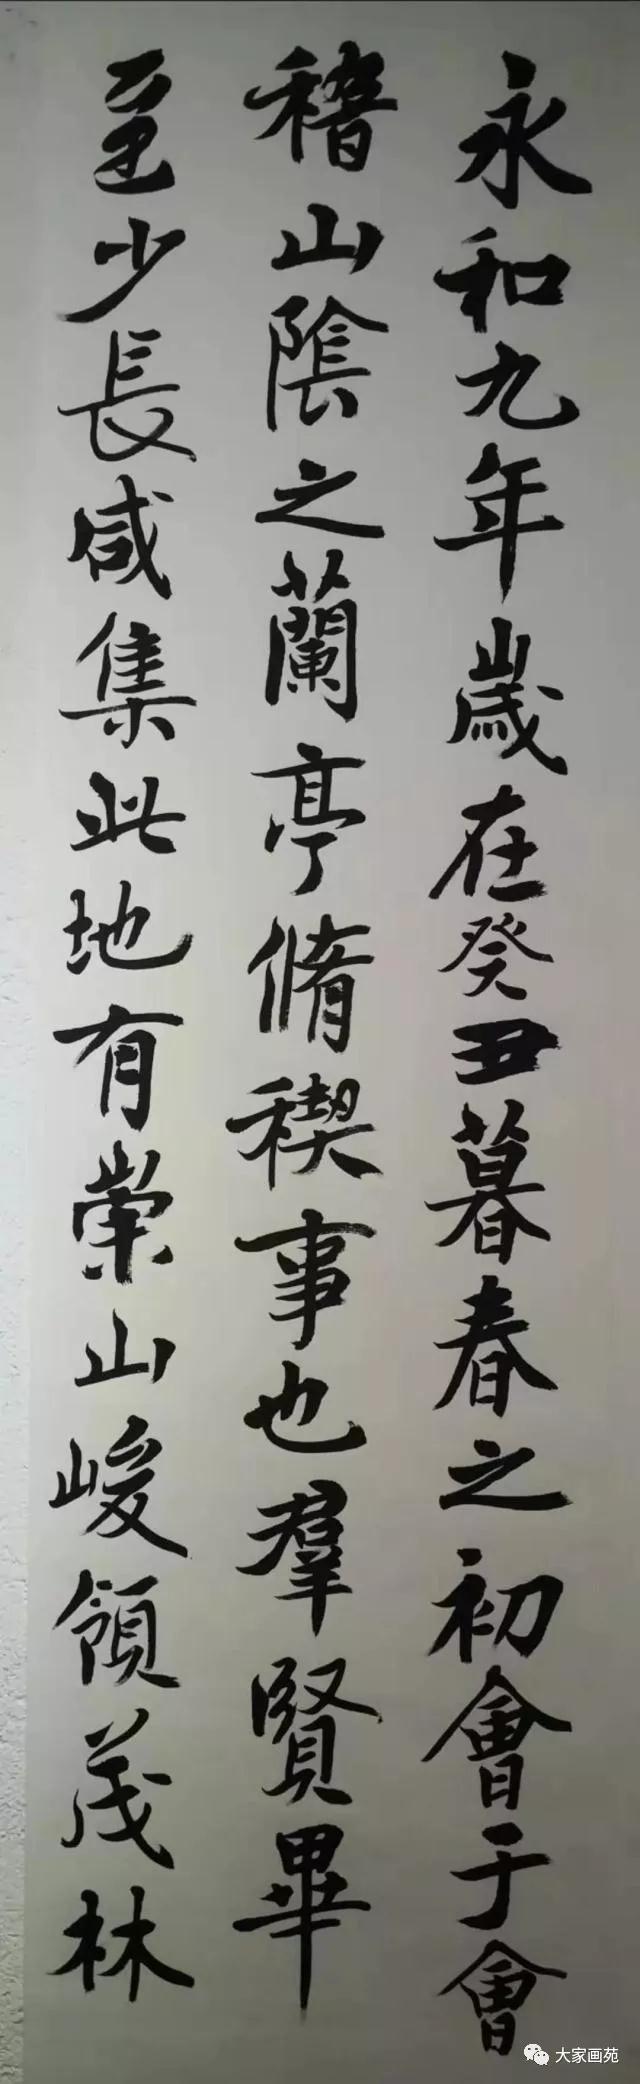 永和九年歲在癸丑暮春之初會于會
稽山陰之蘭亭脩稧事也羣賢畢
至少長咸集此地有崇山峻領茂林
大家画苑